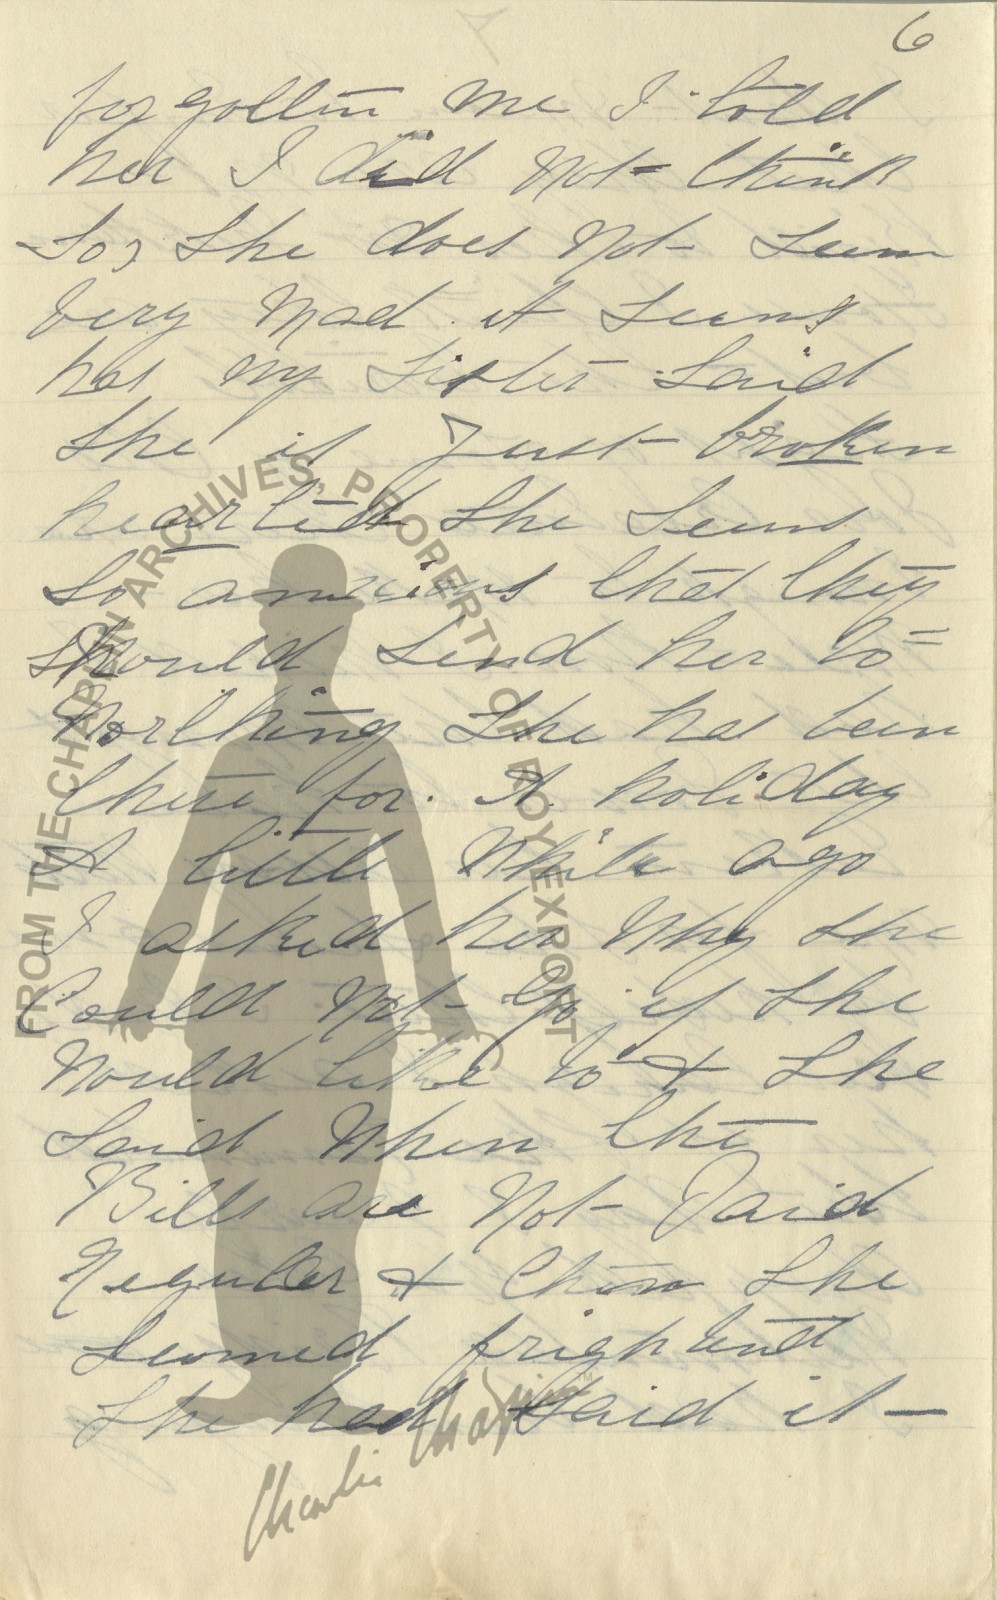 6
forgotten me I told
her I did Not think
So, She does Not Seem
very Mad. it Seems
has my Sister Said
She is Just broken
hearted She Seems
So anxious that they
Should Send her to
Worthing She has been
there for. A. holiday
A little While ago
I asked her Why She
Could Not Go if She
Would like to & She
Said When the
Bills are Not Paid
Reguler & then She
Seemed frightend
She had Said it—
FROM THE CHAPLIN ARCHIVES, PROPERTY OF ROY EXPORT
Charlie Chaplin ™